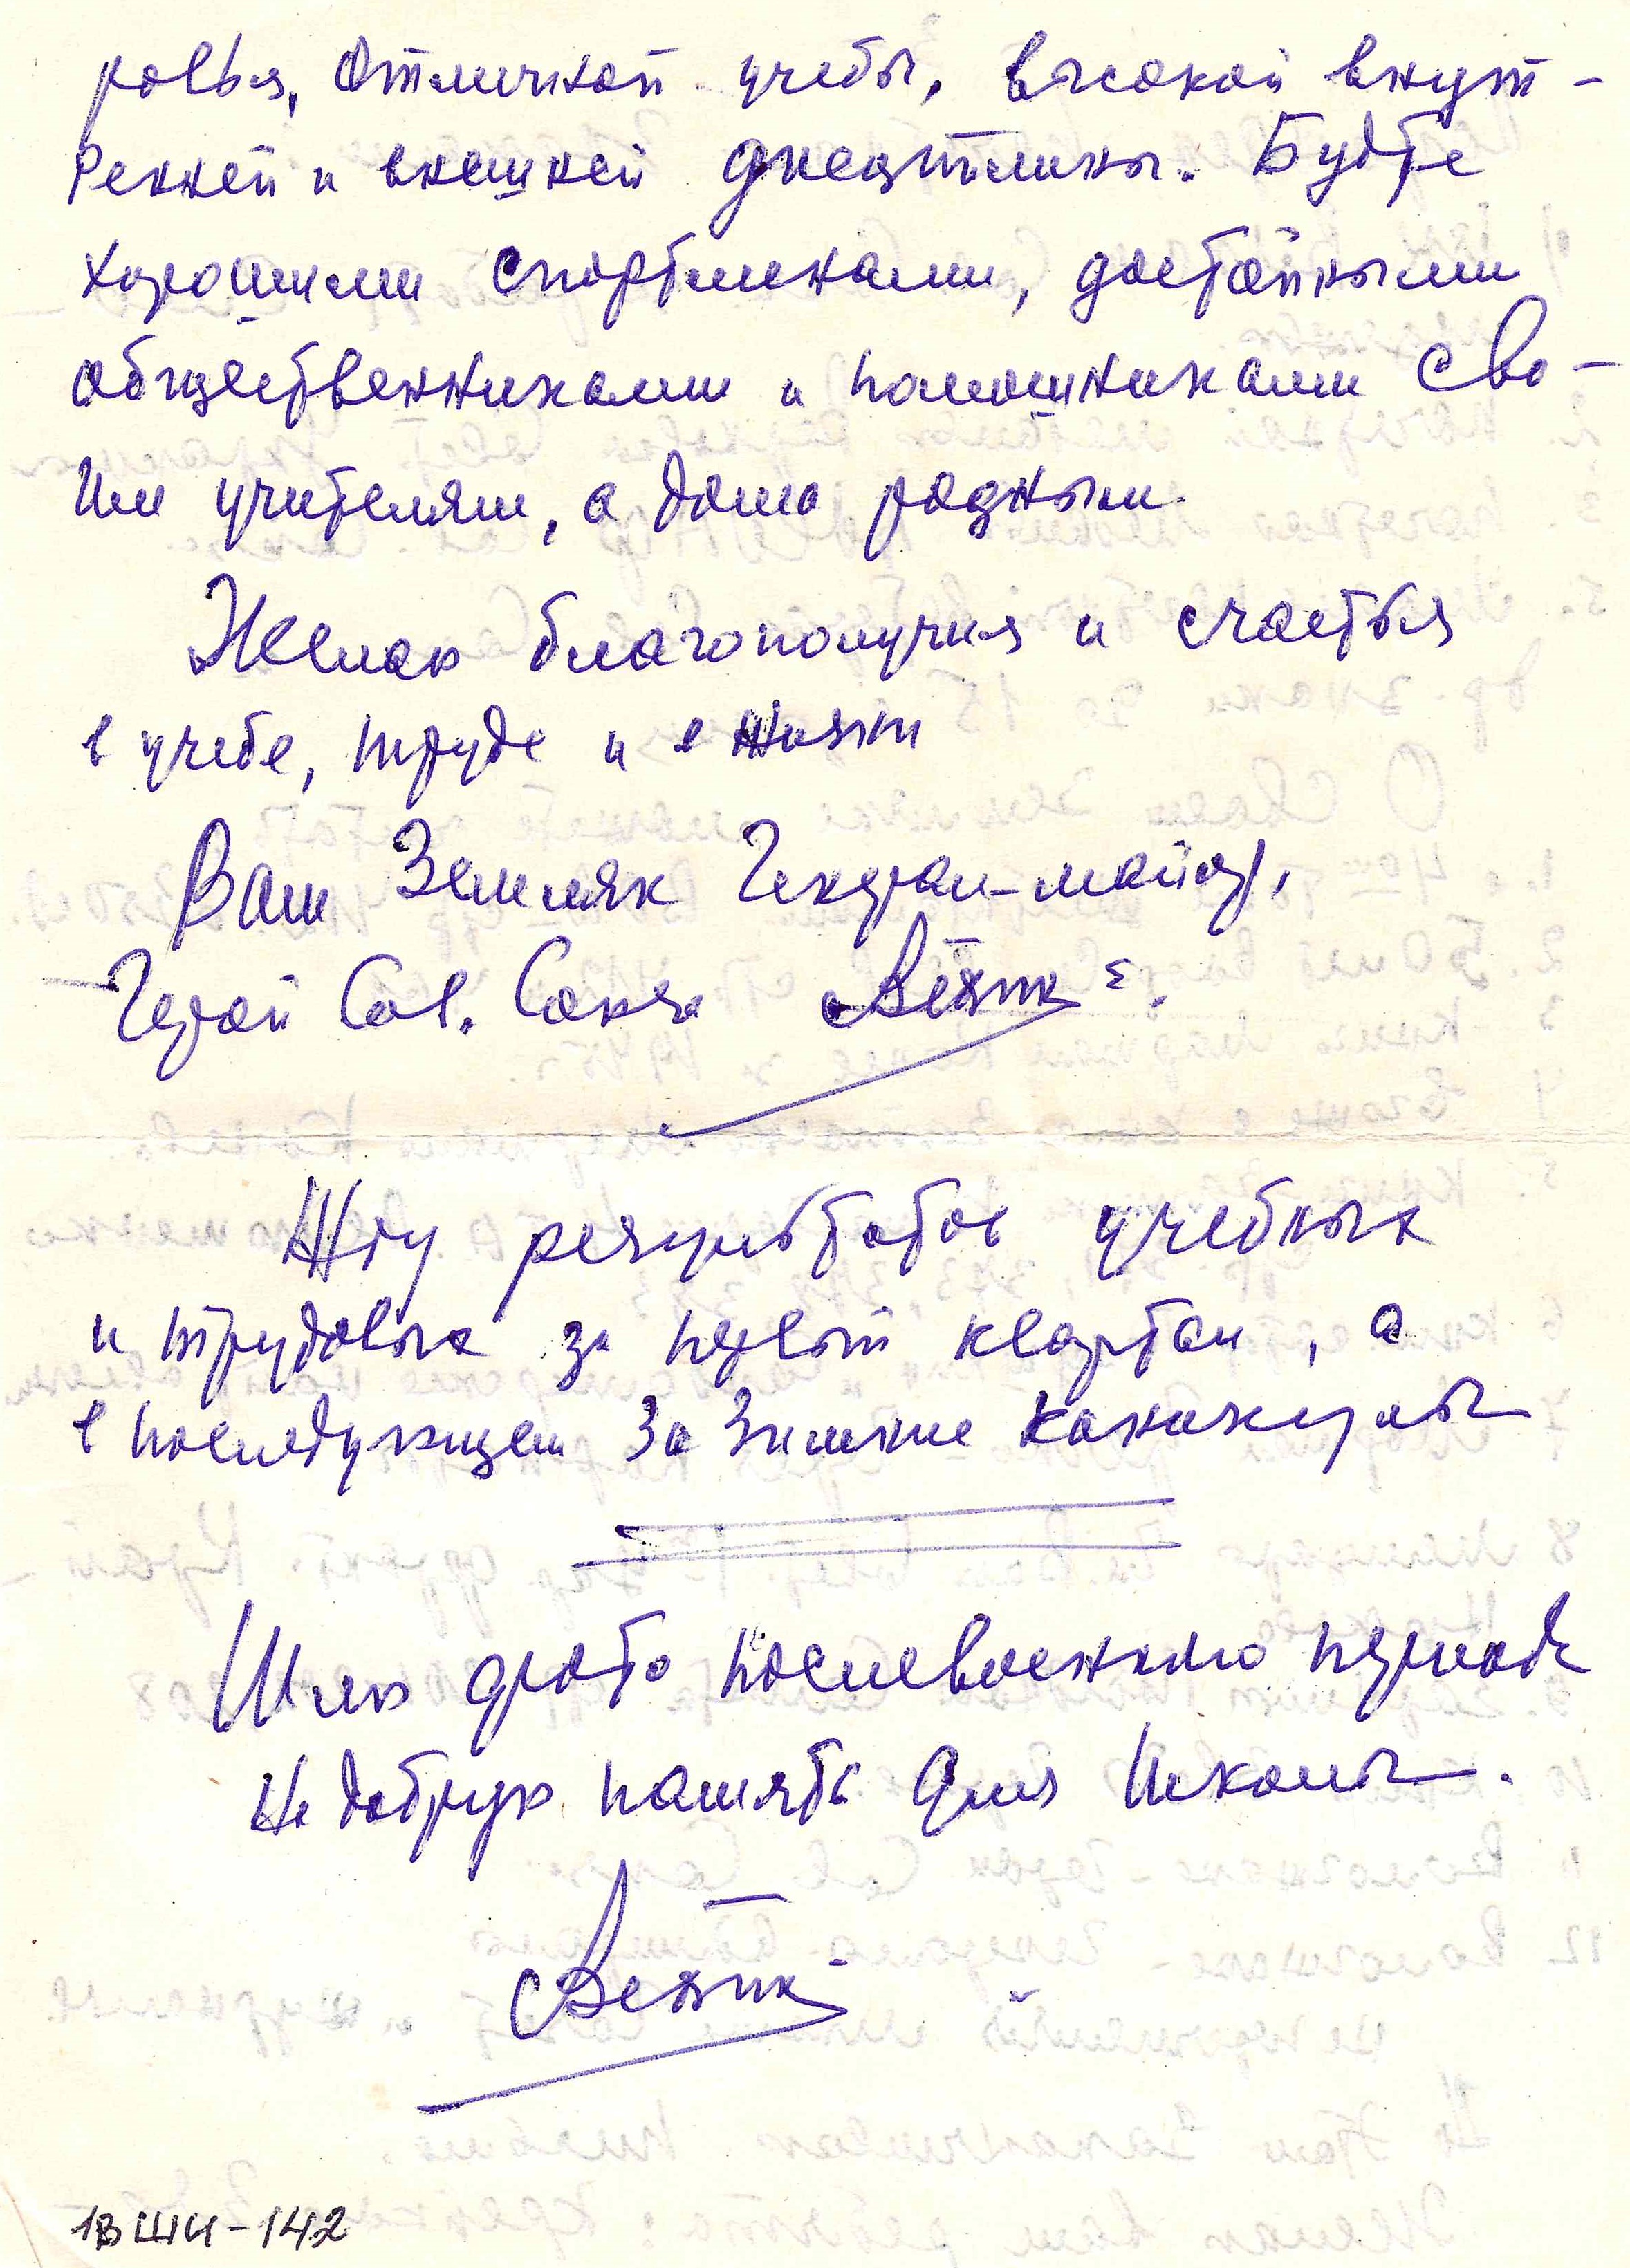 ровья, отличной учебы, высокой внут-
ренней и внешней дисциплины. Будте
хорошими спортсменами, достойными
общественниками и помошниками сво-
им учителям, а дома родным.
Желаю благополучия и счастья
в учебе, труде и в жизни
Ваш Земляк Генерал-майор,
Герой Сов. Союза
Жду результатов учебных
и трудовых за первый квартал, а
в последующем За Зимние каникулы
Шлю фото послевоенного периода
На добрую память Для Школы.
1ВШИ-142